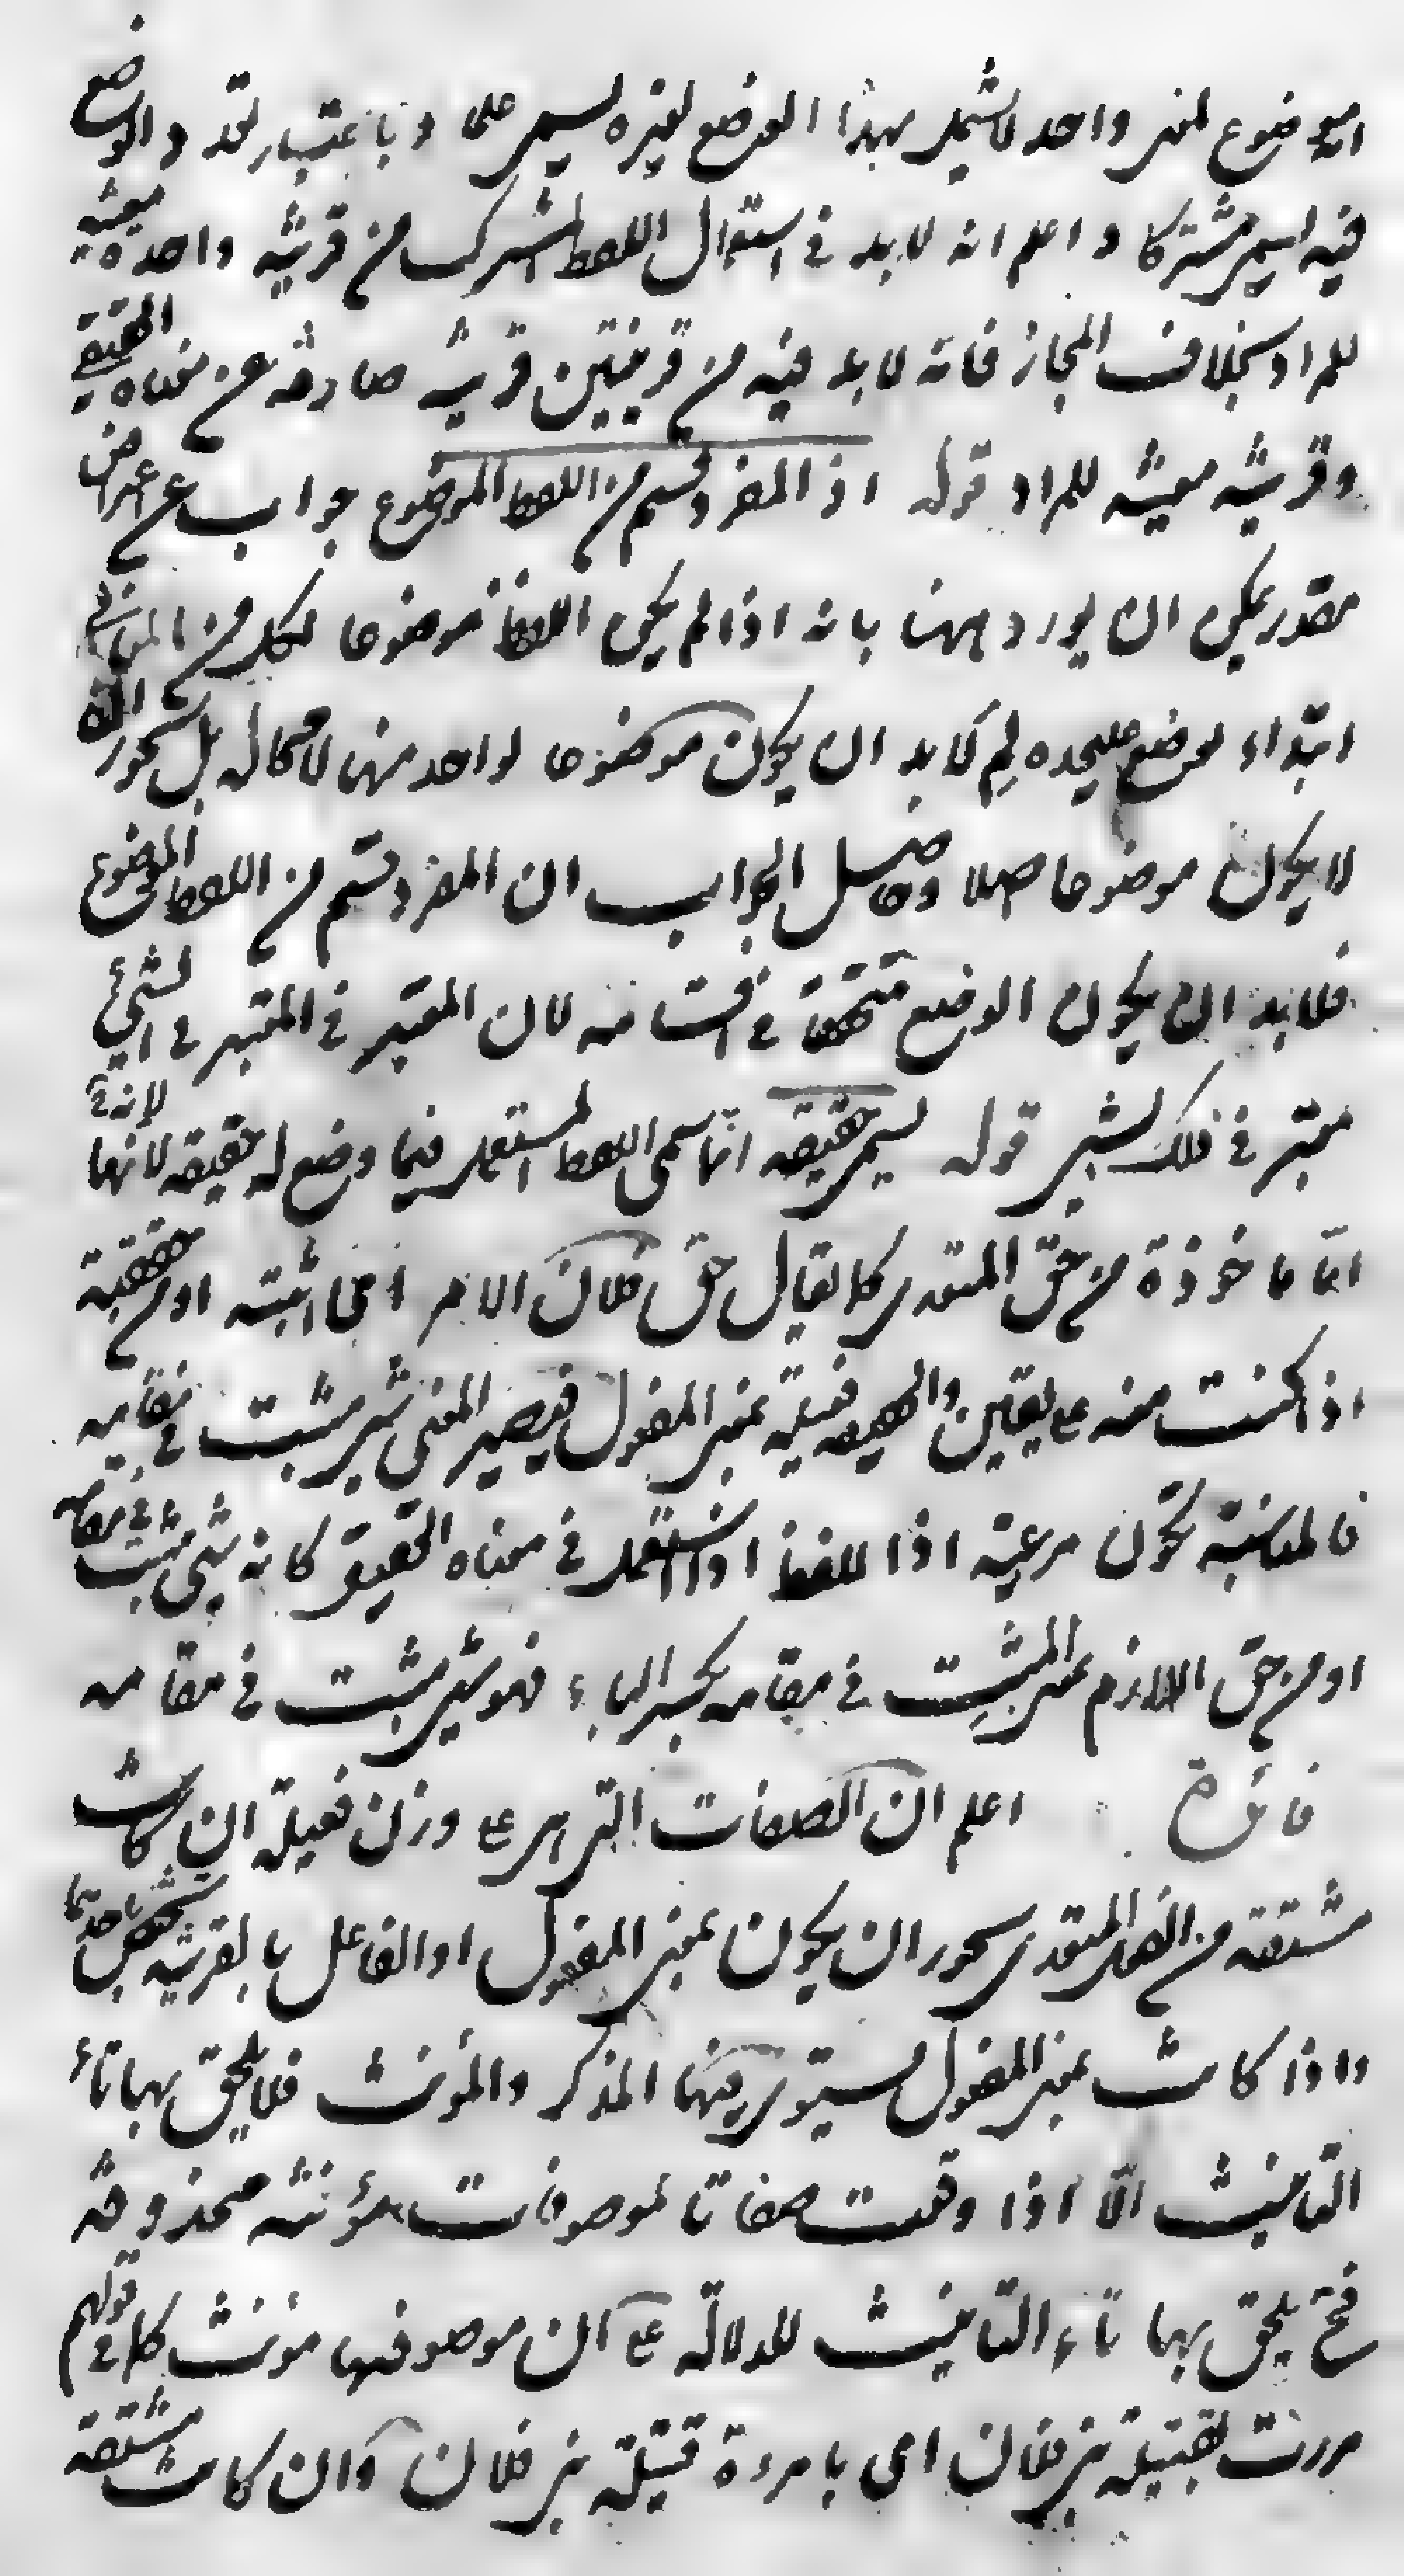 انه موضوع لمعنى واحد لا يشمل بهذا الوضع لغيره يسمى علما وباعتبار تعدد الوضع
فيه يسمى مشتركا واعلم انه لابد في استعمال اللفظ المشترك من قرينة واحدة معينة
للمراد بخلاف المجاز فانه لابد فيه من قرينتين قرينة صارفة عن معناه الحقيقي
وقرينة معينة للمراد قوله اذ المفرد قسم من اللفظ الموضوع جواب عن اعتراض
مقدر يمكن ان يورد ههنا بانه اذا لم يكن اللفظ موضوعا لكل من المعاني
ابتداء بوضع عليحدة لِمَ لابد ان يكون موضوعا لواحد منها لا محالة بل يجوز انه
لا يكون موضوعا اصلا وحاصل الجواب ان المفرد قسم من اللفظ الموضوع
فلابد ان يكون الوضع متحققا في اقسامه لان المعتبر في المعتبر في الشيء
معتبر في ذلك الشيء قوله يسمى حقيقة انما سمى اللفظ المستعمل فيما وضع له حقيقة لانها
اما ماخوذة من حق المتعدي كما يقال حق فلان الامر اي اثبته او من حققته
اذا كنت منه على يقين والحقيقة فعيلة بمعنى المفعول فيصير المعنى شيء مثبت في مقامه
فالمناسبة تكون مرعية اذا اللفظ اذا استعمل في معناه الحقيقي كانه شيء مثبت في مقامه
او من حق اللازم بمعنى المثبِت في مقامه بكسر الباء فهو شيء مثبت في مقامه
فائدة اعلم ان الصفات التي هي على وزن فعيلة ان كانت
مشتقة من الفعل المتعدي يجوز ان يكون بمعنى المفعول او الفاعل بالقرينة يختص باحدهما
واذا كانت بمعنى المفعول يستوي فيها المذكر والمؤنث فلا يلحق بها تاء
التانيث الا اذا وقعت صفاتا لموصوفات مؤنثة محذوفة
فح يلحق بها تاء التانيث للدلالة على ان موصوفها مؤنث كما في قولهم
مررت بقتيلة بني فلان اي بامرءة قتيلة بني فلان وان كانت مشتقة